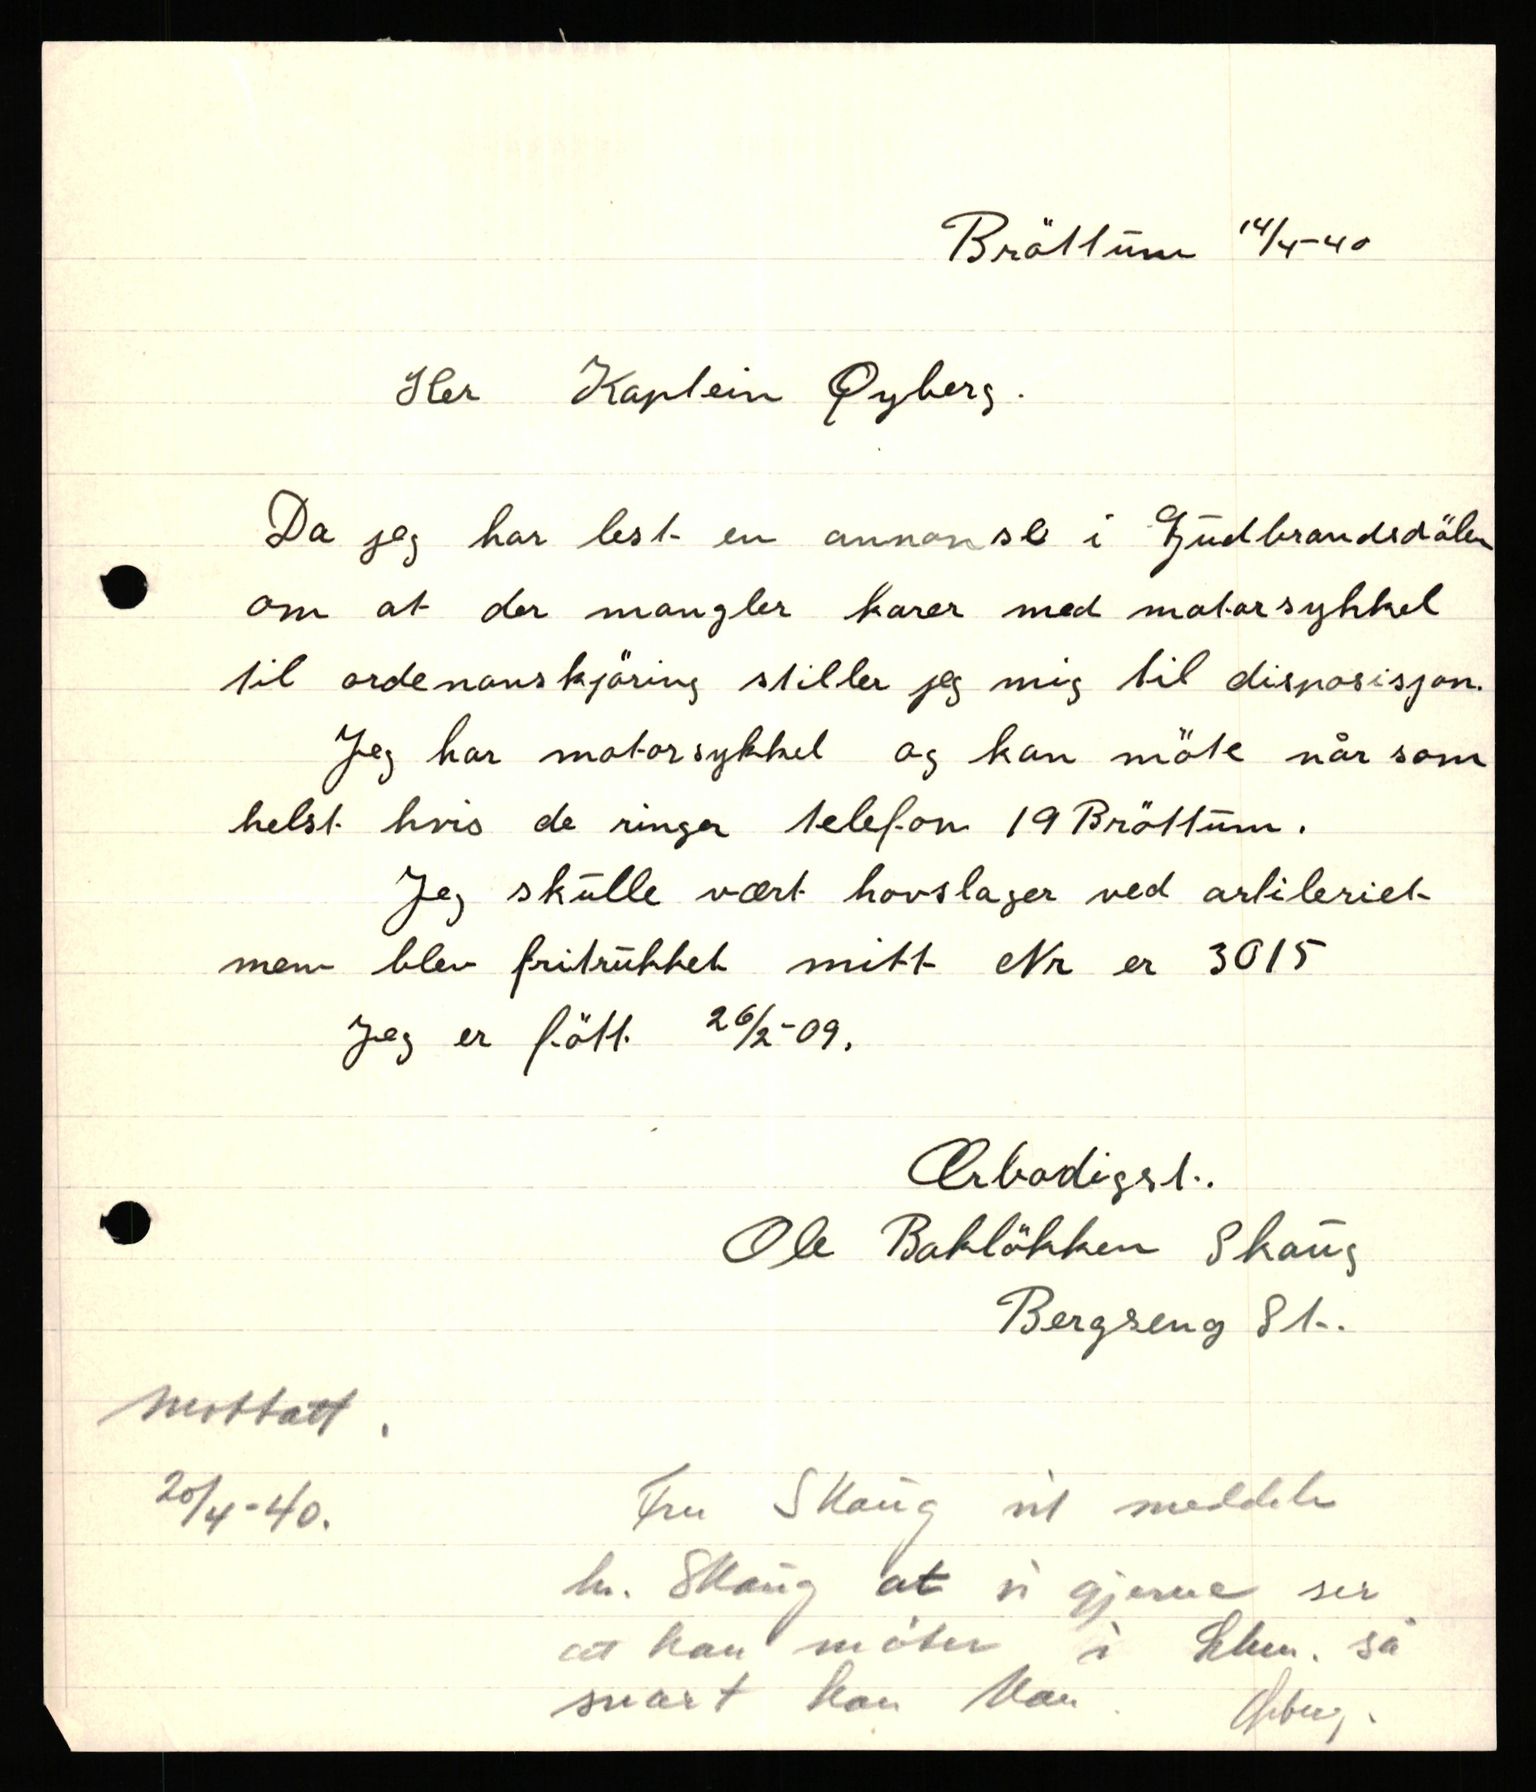 Bröttum 14/4-40
Her Kaptein Øyberg.
Da jeg har lest en annonse i Gudbrandsdölen
om at der mangler karer med motorsykkel
til ordenanskjöring stiller jeg mig til disposisjon.
Jeg har motorsykkel og kan möte når som
helst hvis de ringer telefon 19 Bröttum.
Jeg skulle vært hovslager ved artileriet
men blev fritrukket mitt Nr er 3015
Jeg er fött 26/2-09.
Ærbødigst.
Ole Baklökken Skaug
Bergseng St.
Mottatt.
20/4-40.
Fru Skaug vil meddele
hr. Skaug at vi gjerne ser
at han möter i Lhmr. så
snart han kan.